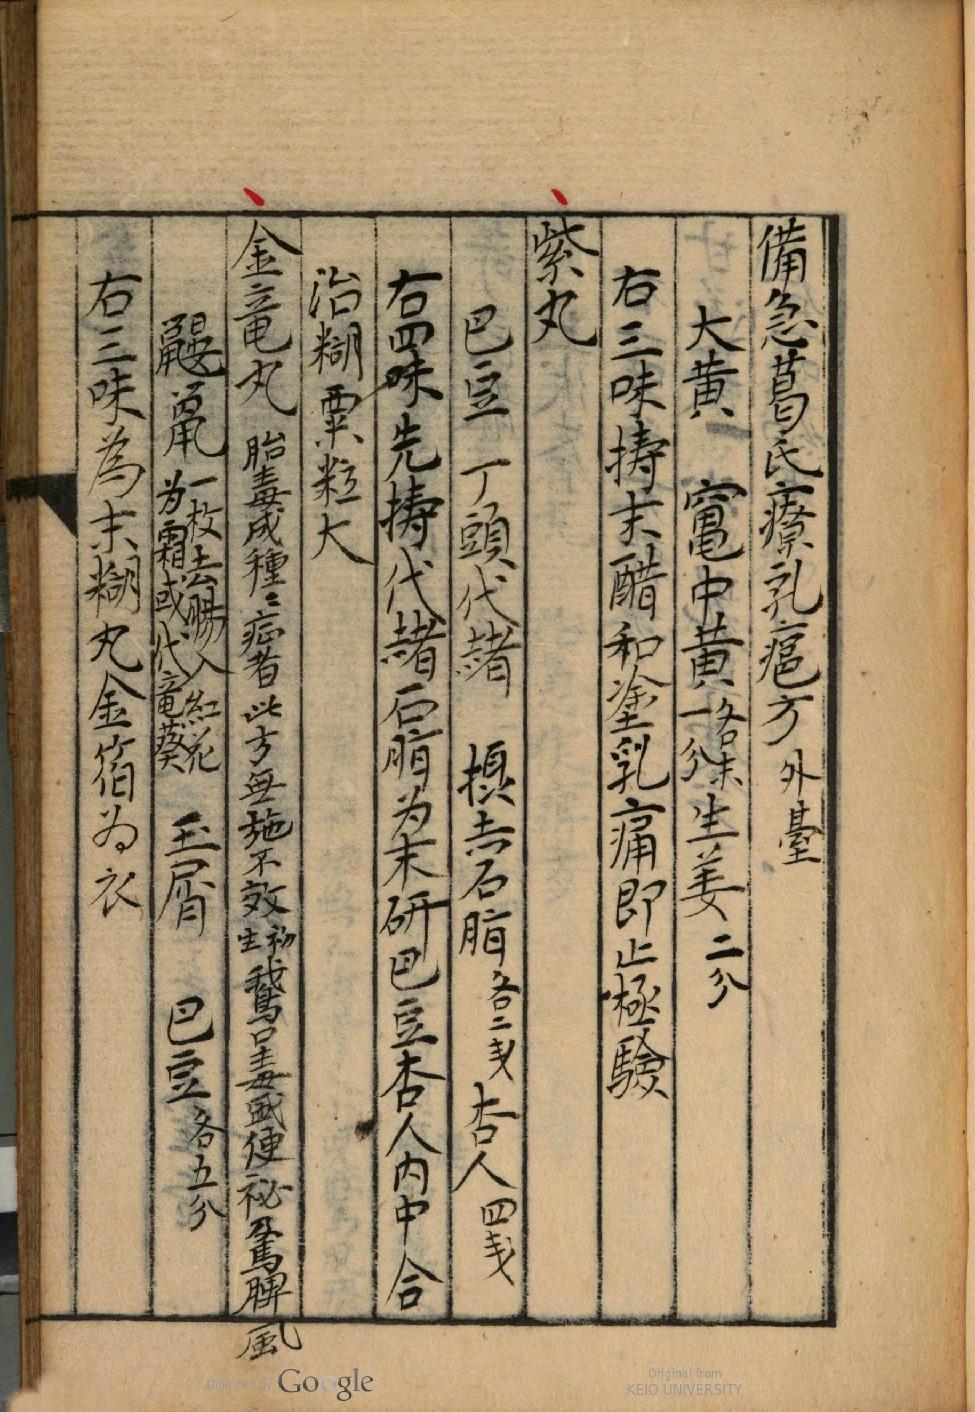 備急葛氏療乳瘡方 外臺
大黄 竃中黄 各末一分 生姜 二分
右三味擣末醋和塗乳痛即止極驗
紫丸
巴豆 丁頭代赭 摂 赤石脂 各二戔 杏人 四戔
右四味先擣代赭石脂为末研巴豆杏人内中合
治糊粟粒大
金竜丸 胎毒成種〻症者此方無施不效 初生鵞口毒盛便祕及馬脾風
鼴鼠 一枚去腸入紅花为霜或代竜葵 玉屑 巴豆 各五分
右三味為末糊丸金箔为衣
Digitized by Google
Original from
KEIO UNIVERSITY